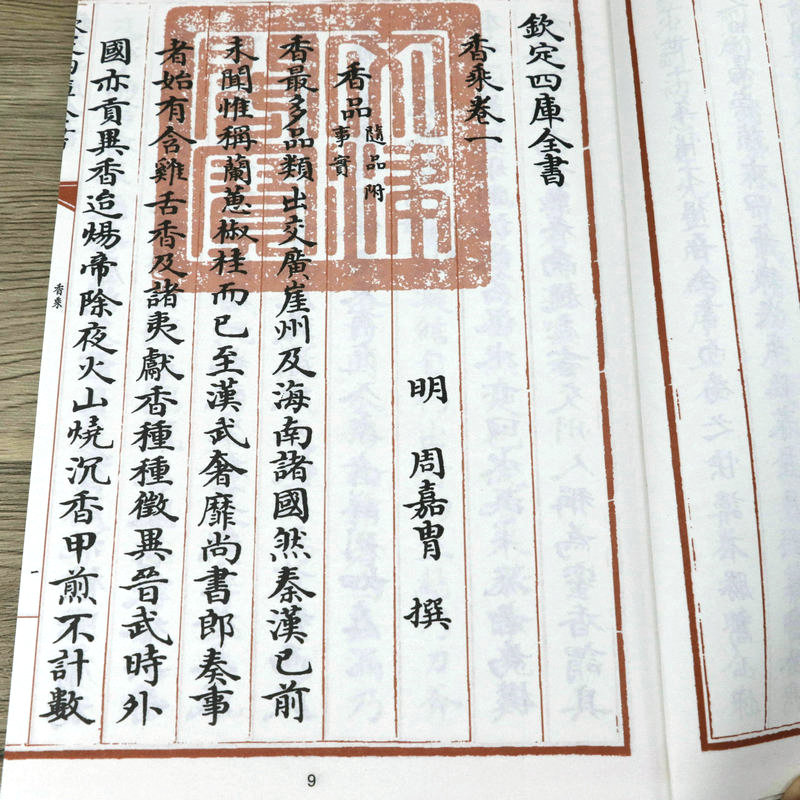 欽定四庫全書
香乘卷一
明 周嘉胄 撰
香品 隨品附事實
香最多品類出交廣崖州及海南諸國然秦漢已前
未聞惟稱蘭蕙椒桂而已至漢武奢靡尚書郎奏事
者始有含雞舌香及諸夷獻香種種徵異晉武時外
國亦貢異香迨煬帝除夜火山燒沉香甲煎不計數
香乘
9